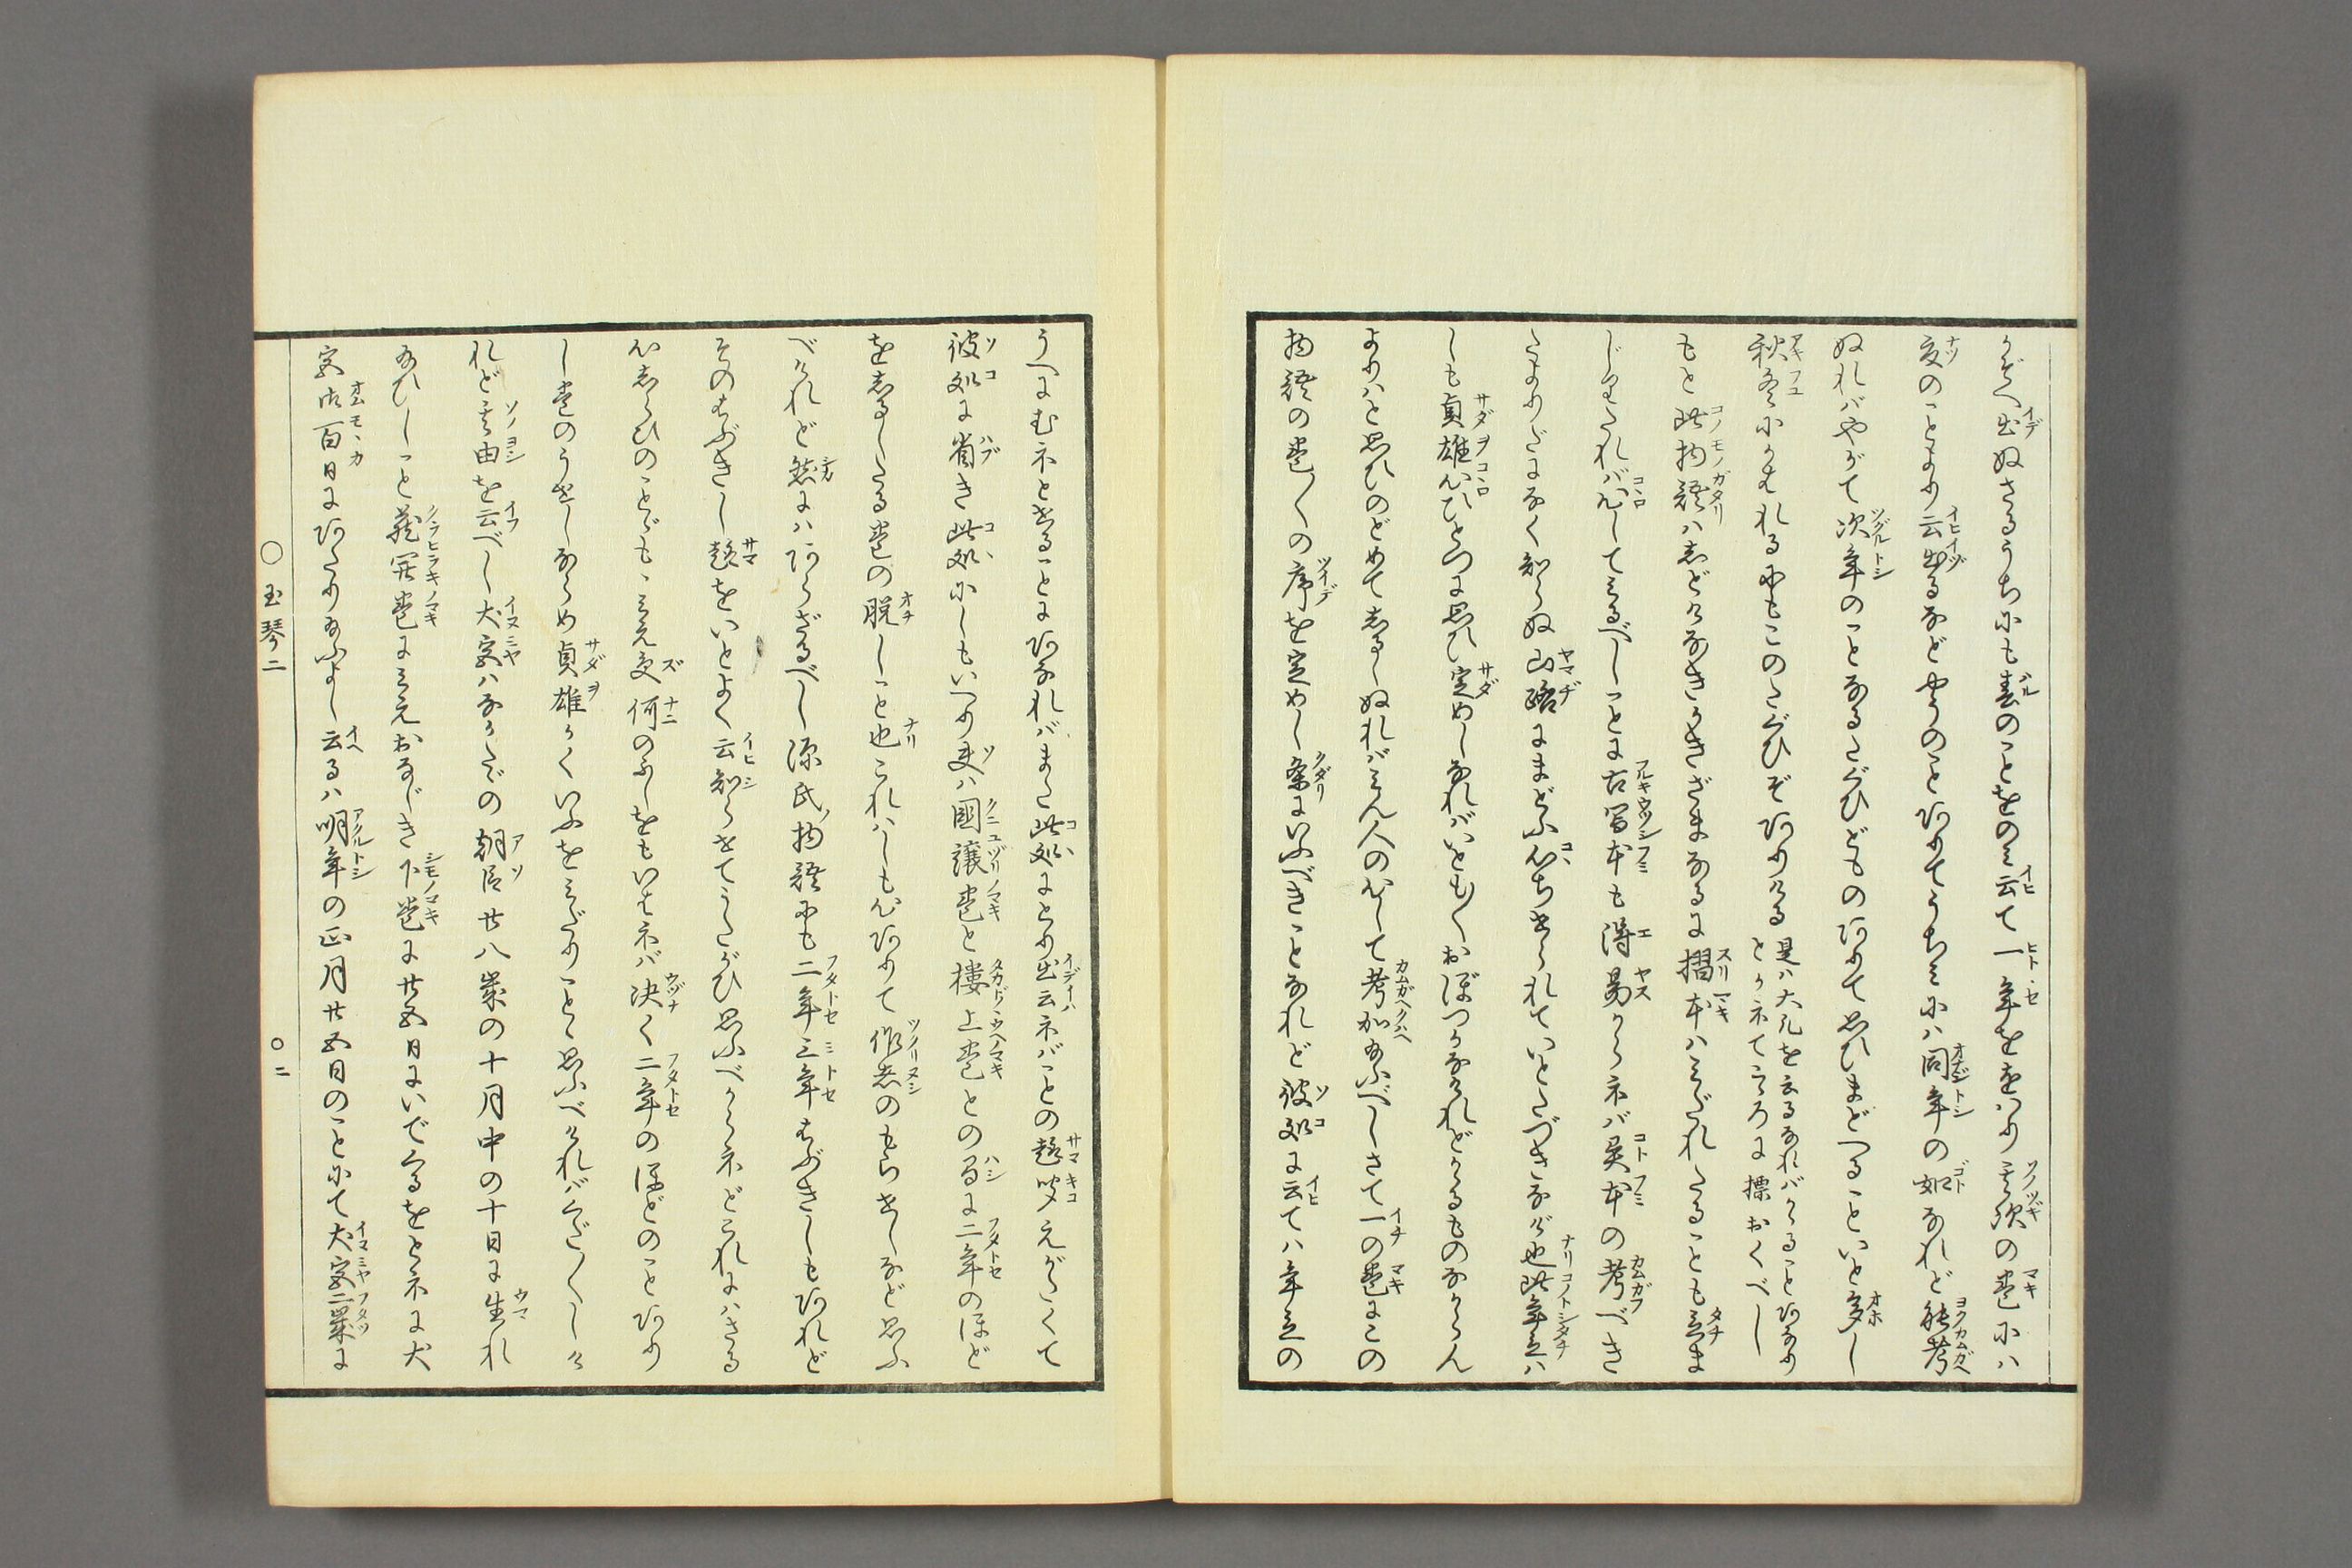 かぞへ出ぬさるうちにも春のことをのミ云て一年ををはり其次の巻にハ
夏のことより云出るなどやうのことありてうちミにハ同年の如なれど能考
ぬれバやがて次年のことなるたぐひどものありて思ひまどへることいと多し
秋冬にかはれるにもこのたぐひぞありける
是ハ大凡を云るなれバかゝることあなり
とかネてこゝろに標おくべし
もと此物語ハしどけなきかきざまなるに摺本ハミだれたることも立ま
じりたれバ心してミるべしことに古写本も得易からネバ異本の考べき
たよりだになく知らぬ山路にまどふ心ちせられていとたづきなが也此年立ハ
しも貞雄心ひとつに思ひ定めしなれバいとも／＼おぼつかなけれどかゝるものなからん
よりハと思ひのどめてしるしぬれバミん人の心して考加給ふべしさて一の巻にこの
物語の巻／＼の序を定めし条にいふべきことなれど彼処に云てハ年立の
うへにむネとせることにあなれバまた此処にとり出云ネバことの趣聞えがたくて
彼処に省き此処にしもいへり夫ハ國讓巻と樓上巻との間に二年のほど
をしるしたる巻の脱しこと也これハしも心ありて作者のもらせしなど思ふ
べけれど然にハあらざるべし源氏ノ物語にも二年三年はぶきしもあれど
そのはぶきし趣をいとよく云知らせてうたがひ思ふべからネどこれにハさる
心しらひのことゞもミえ受何のふしをもいはネバ決く二年のほどのことあり
し巻のうせしならめ貞雄かくいふをミだりことゝ思ふべけれバくだ／＼しけ
れど其由を云べし犬宮ハなかたゞの朝臣廿八歳の十月中の十日に生れ
給ひしこと蔵開巻にミえおなじき下巻に廿五日にいでくるをとネに犬
宮御百日にあたり給ふよし云るハ明年の正月廿五日のことにて犬宮二歳に
○玉琴二
○二